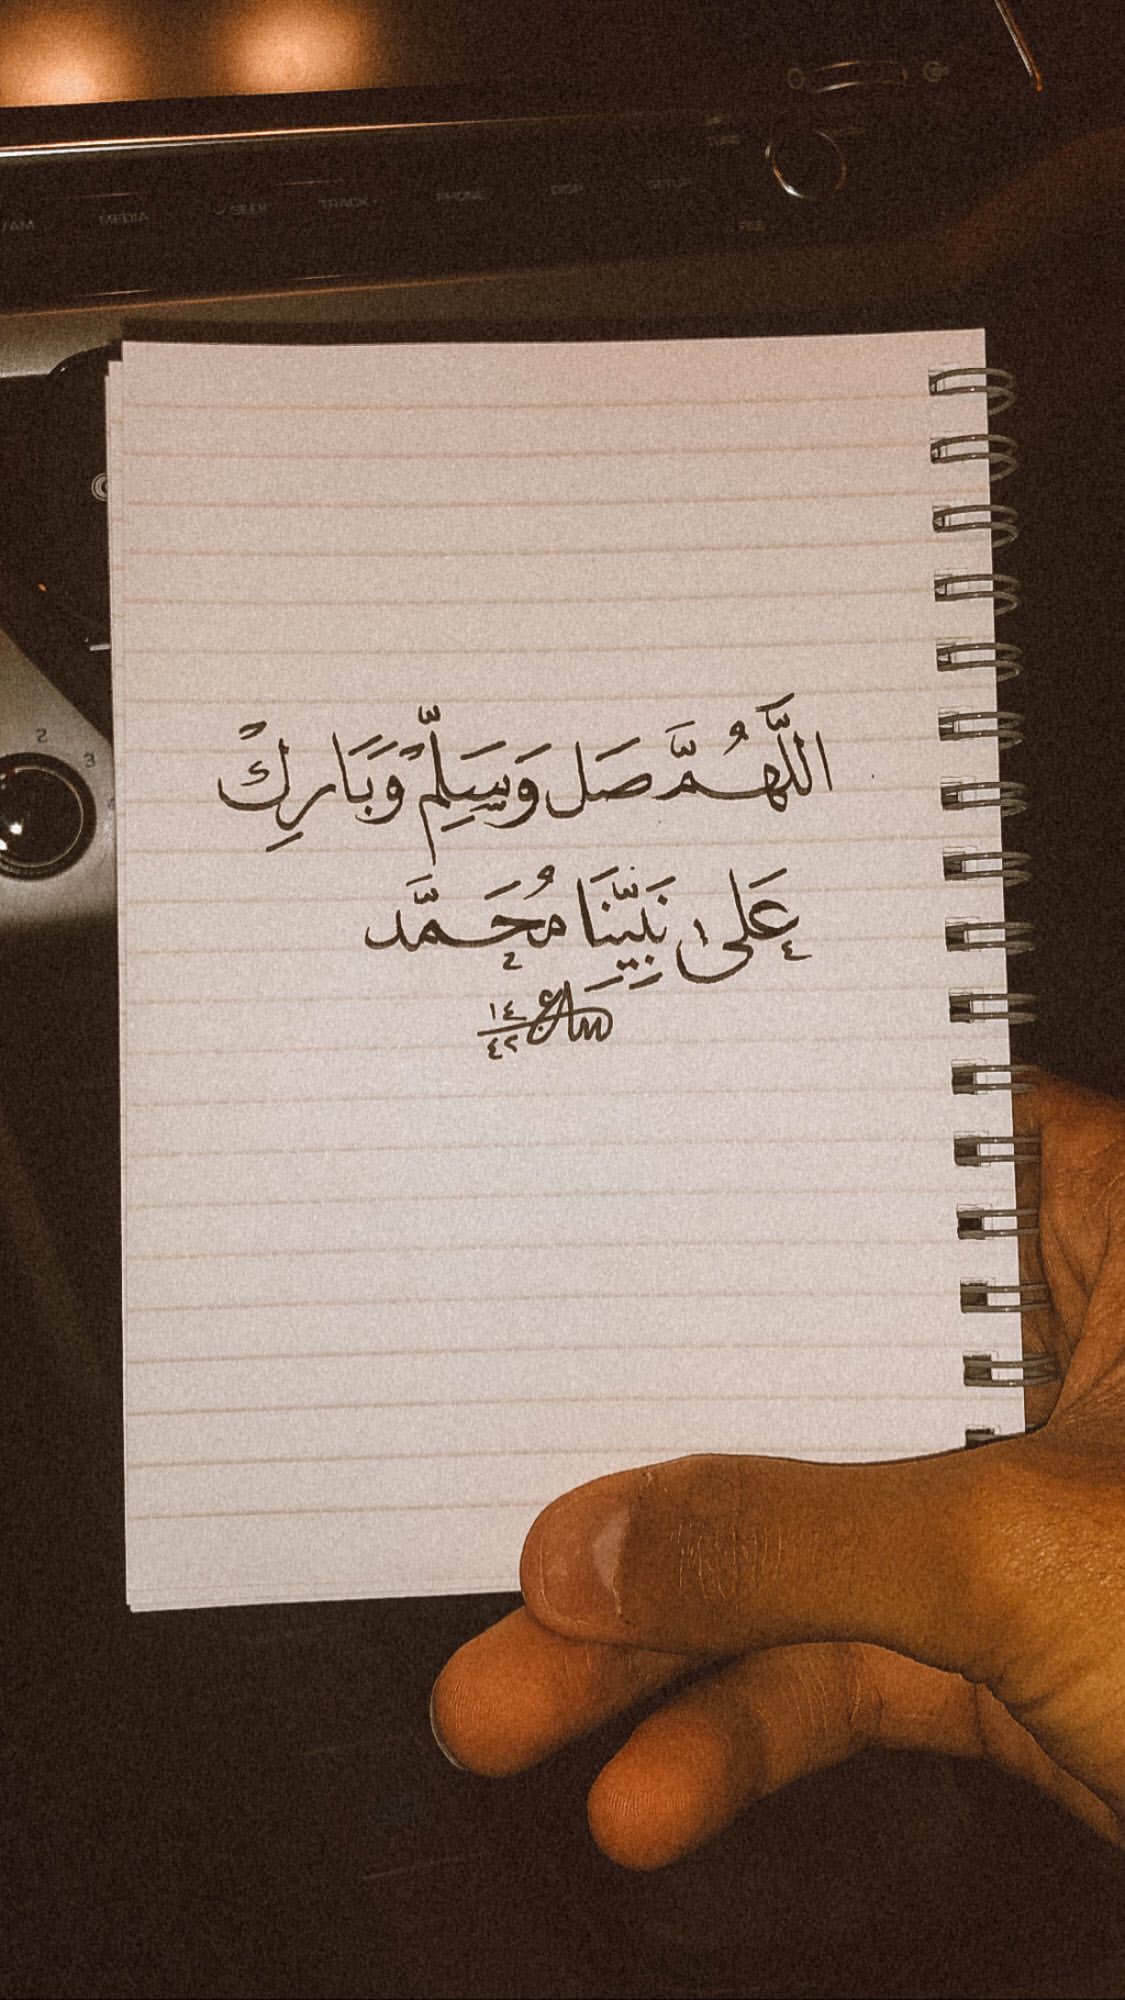 AM MEDIA SEEK TRACK PHONE DISP SETUP
TUNE
FILE
2
3
اللَّهُمَّ صَل وَسَلِّمْ وَبَارِكْ
عَلى نَبِيِّنَا مُحَمَّد
١٤
٤٢